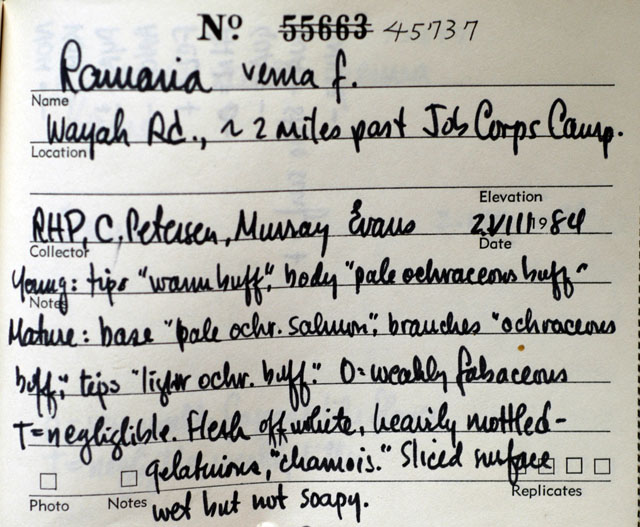 Nº 55663 45737
Ramaria verna f.
Name
Wayah Rd., ~ 2 miles past Job Corps Camp.
Location
Elevation
RHP, C. Petersen, Murray Evans 2.VIII 1984
Collector Date
Young: tips "warm buff", body "pale ochraceous buff"
Notes
Mature: base "pale ochr. salmon", branches "ochraceous
buff"; tips "light ochr. buff." O=weakly fabaceous
T=negligible. Flesh off white, heavily mottled-
gelatinous, "chamois." Sliced surface
Photo Notes wet but not soapy. Replicates